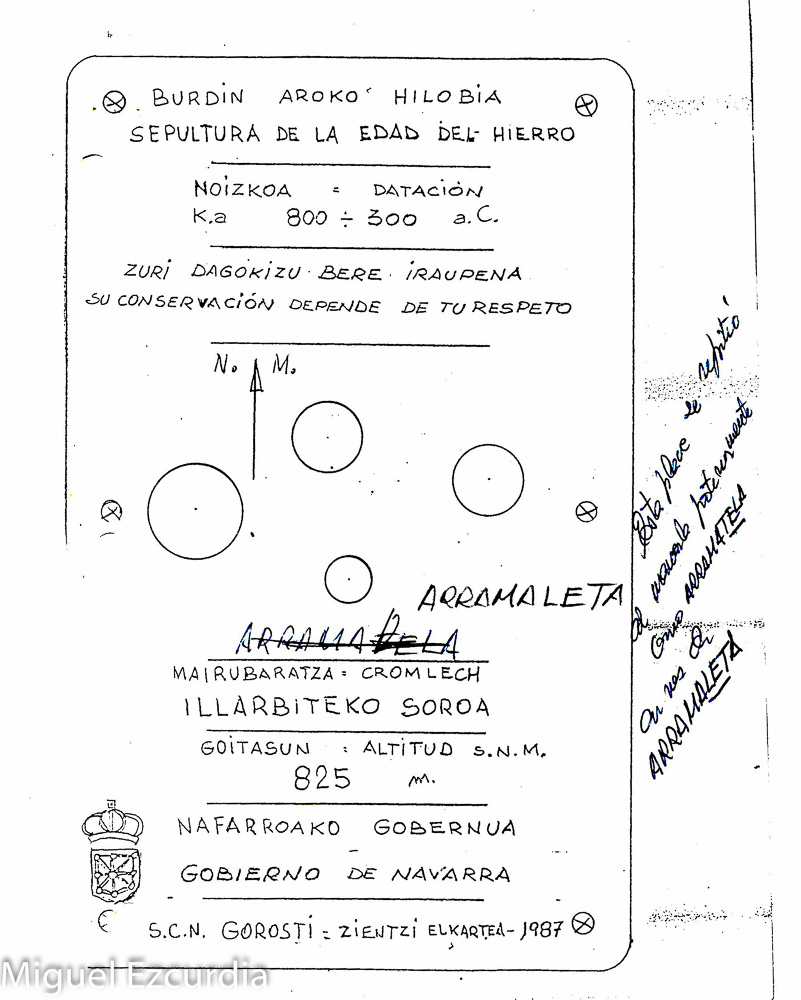 BURDIN AROKO HILOBIA
SEPULTURA DE LA EDAD DEL HIERRO
NOIZKOA = DATACIÓN
K.a 800 ÷ 300 a.C.
ZURI DAGOKIZU BERE IRAUPENA
SU CONSERVACIÓN DEPENDE DE TU RESPETO
N. M.
ARRAMALETA
ARRAMATELA
MAIRUBARATZA = CROMLECH
ILLARBITEKO SOROA
GOITASUN : ALTITUD S.N.M.
825 m.
NAFARROAKO GOBERNUA
GOBIERNO DE NAVARRA
S.C.N. GOROSTI = ZIENTZI ELKARTEA - 1987
Esta placa se repitió
posteriormente
como ARRAMATELA
ARRAMALETA
Miguel Ezcurdia